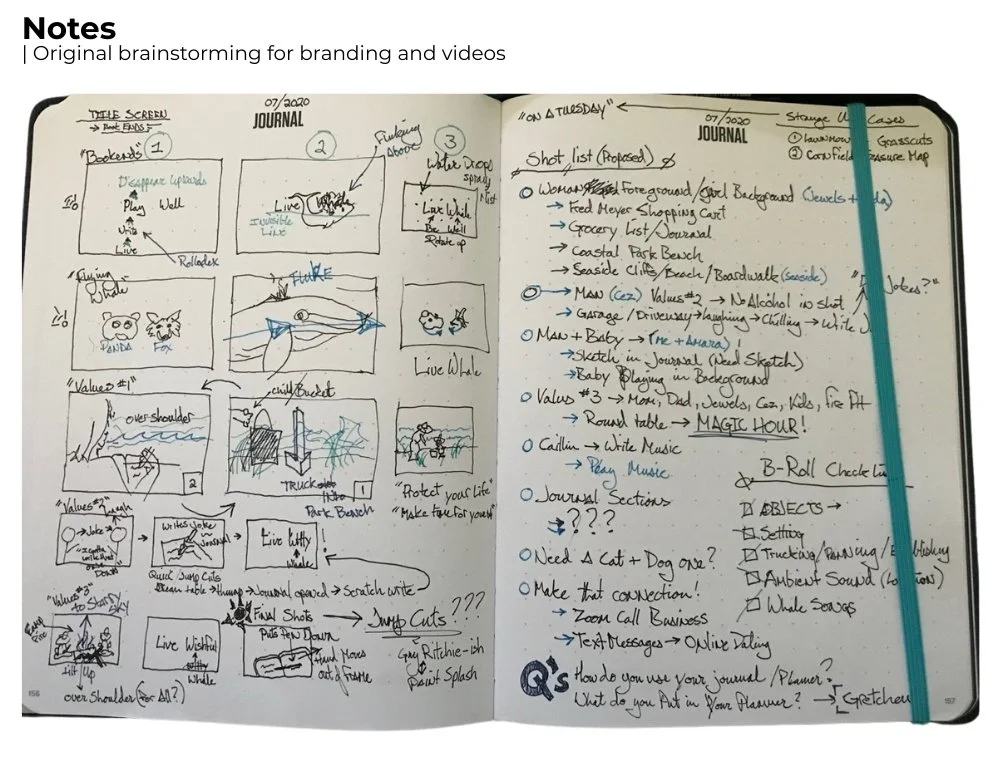 Notes
| Original brainstorming for branding and videos
TITLE SCREEN
→ Book ENDS
07/2020
JOURNAL
"Bookends"
1
2
3
Disappear Upwards
Play Well
Write
Live
Rollodex
Live
Invisible
Line
Flukíng
Above
Water Drops
spray
Mist
Live While
Be Well
Rotate up
"Flying
Whale"
PANDA
Fox
FLUKE
Live Whale
"Values #1"
over shoulder
2
child Bucket
TRUCK
INto
Park Bench
1
"Protect your Life"
"Make time for yourself"
"Values #2"
Laugh
Joke
"I gotta
write that
one
DOWN"
Writes Joke
in Journal
Live Witty
Whale
!
Quick Jump Cuts
Clean table → thump → Journal opened → Scratch write
"Values #3"
to Starry
Sky
Camp
Fire
tilt Up
over Shoulder (For All?)
Live Wishful
Witty
Whale
Final Shots → Jump Cuts ???
Puts Pen Down
Hand Moves
out of Frame
Guy Ritchie-ish
Paint Splash
156
"ON A TUESDAY"
07/2020
JOURNAL
Strange Cases
① Lawnmower Grasscuts
② Cornfield Treasure Map
Shot list (Proposed)
Woman Foreground / Girl Background (Jewels +
→ Fred Meyer Shopping Cart
→ Grocery List/Journal
→ Coastal Park Bench
→ Seaside Cliffs/Beach/Boardwalk (seaside)
→ MAN (Cez) Values #2 → No Alcohol in shot
Jokes?"
→ Garage / Driveway → laughing → Chilling → Write
Man + Baby → (Me + Amara)
→ Sketch in Journal (Need Sketch)
→ Baby Playing in Background
Values #3 → Mom, Dad, Jewels, Cez, Kids, Fire Pit
→ Round table → MAGIC HOUR!
Caitlin → Write Music
→ Play Music
Journal Sections
→ ???
Need A Cat + Dog one?
Make that connection!
→ Zoom Call Business
→ Text Messages → Online Dating
B-Roll Check List
OBJECTS →
Setting
Trucking/Panning/Establishing
Ambient Sound (Location)
Whale Songs
Q's
How do you use your journal / Planner?
What do you Put in Your Planner? → [Gretchen
157